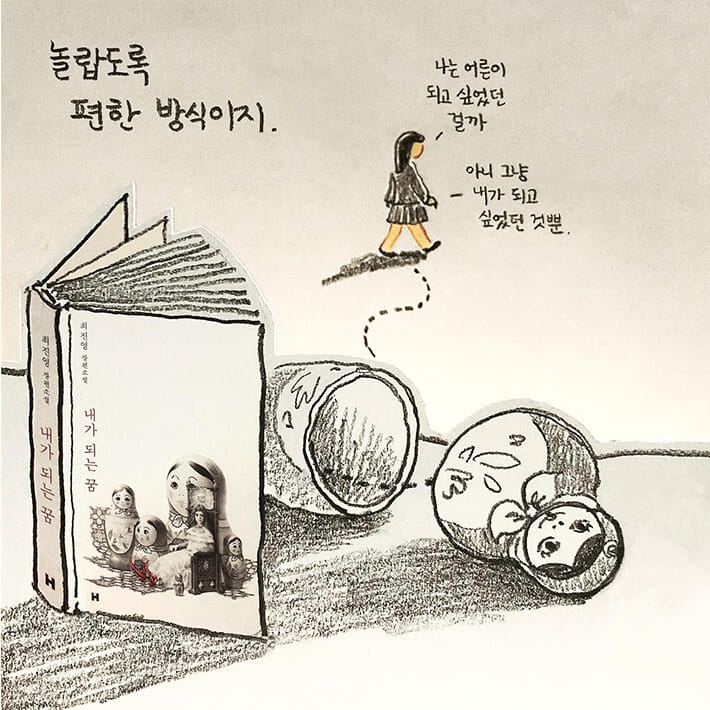 놀랍도록
편한 방식이지.
나는 어른이
되고 싶었던
걸까
아니 그냥
내가 되고
싶었던 것뿐.
최진영 장편소설
내가 되는 꿈
H
최진영 장편소설
내가 되는 꿈
H